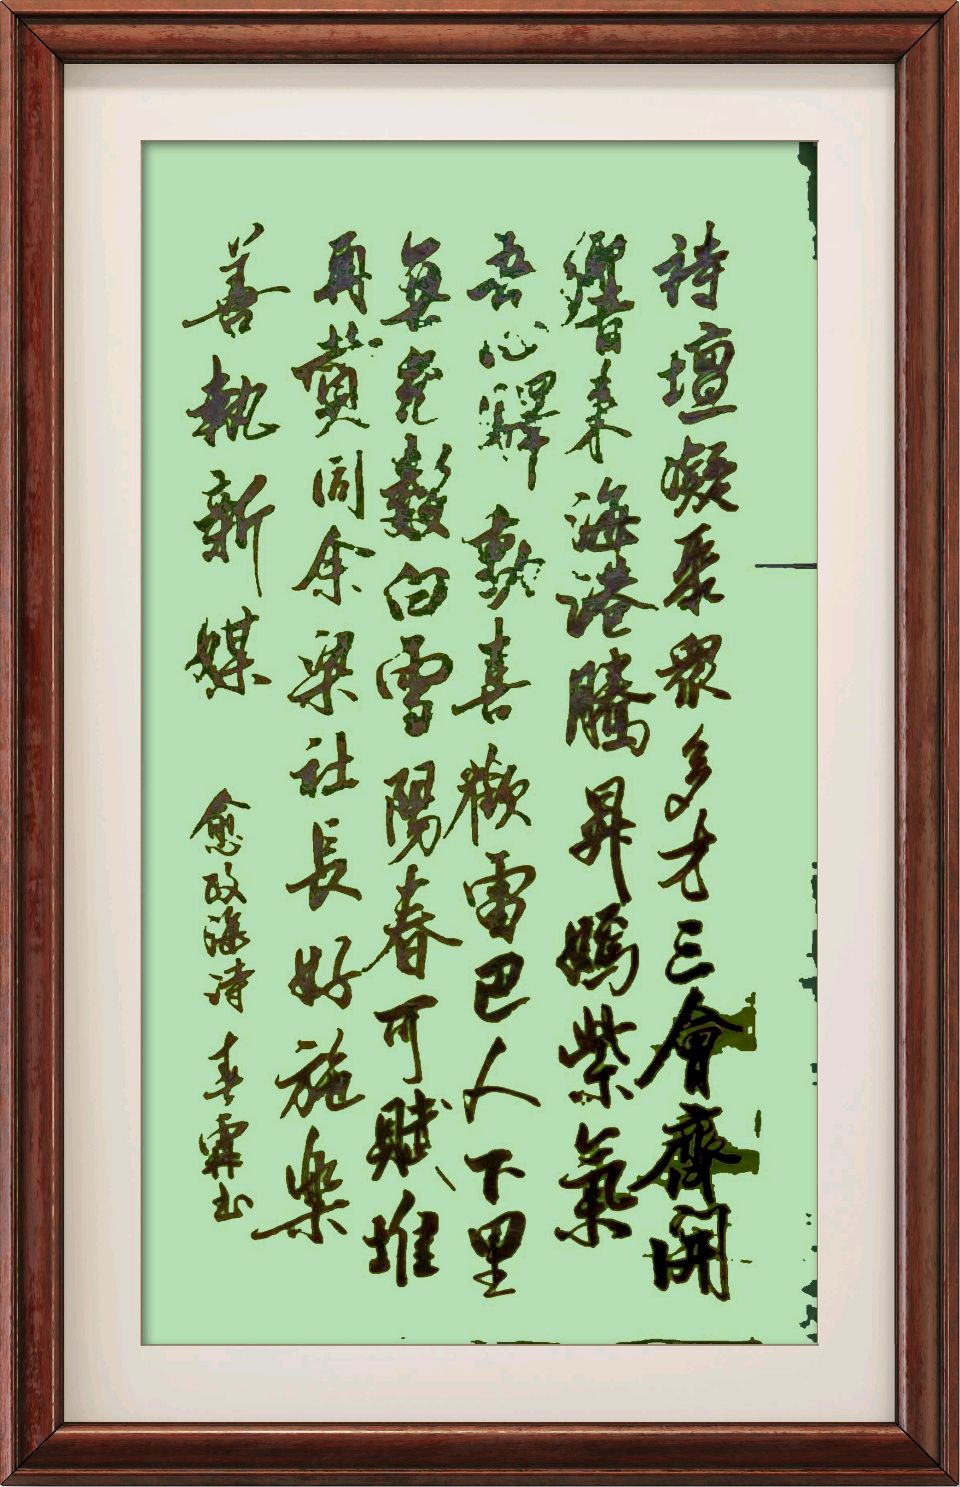 詩壇凝聚眾多才三會齊開
響来海港騰昇嫣紫氣
吾心驛動喜歡雷巴人下里
無數白雪陽春可賦堆
再同余梁社長好施樂
善執新媒 愈政海诗 春霖书